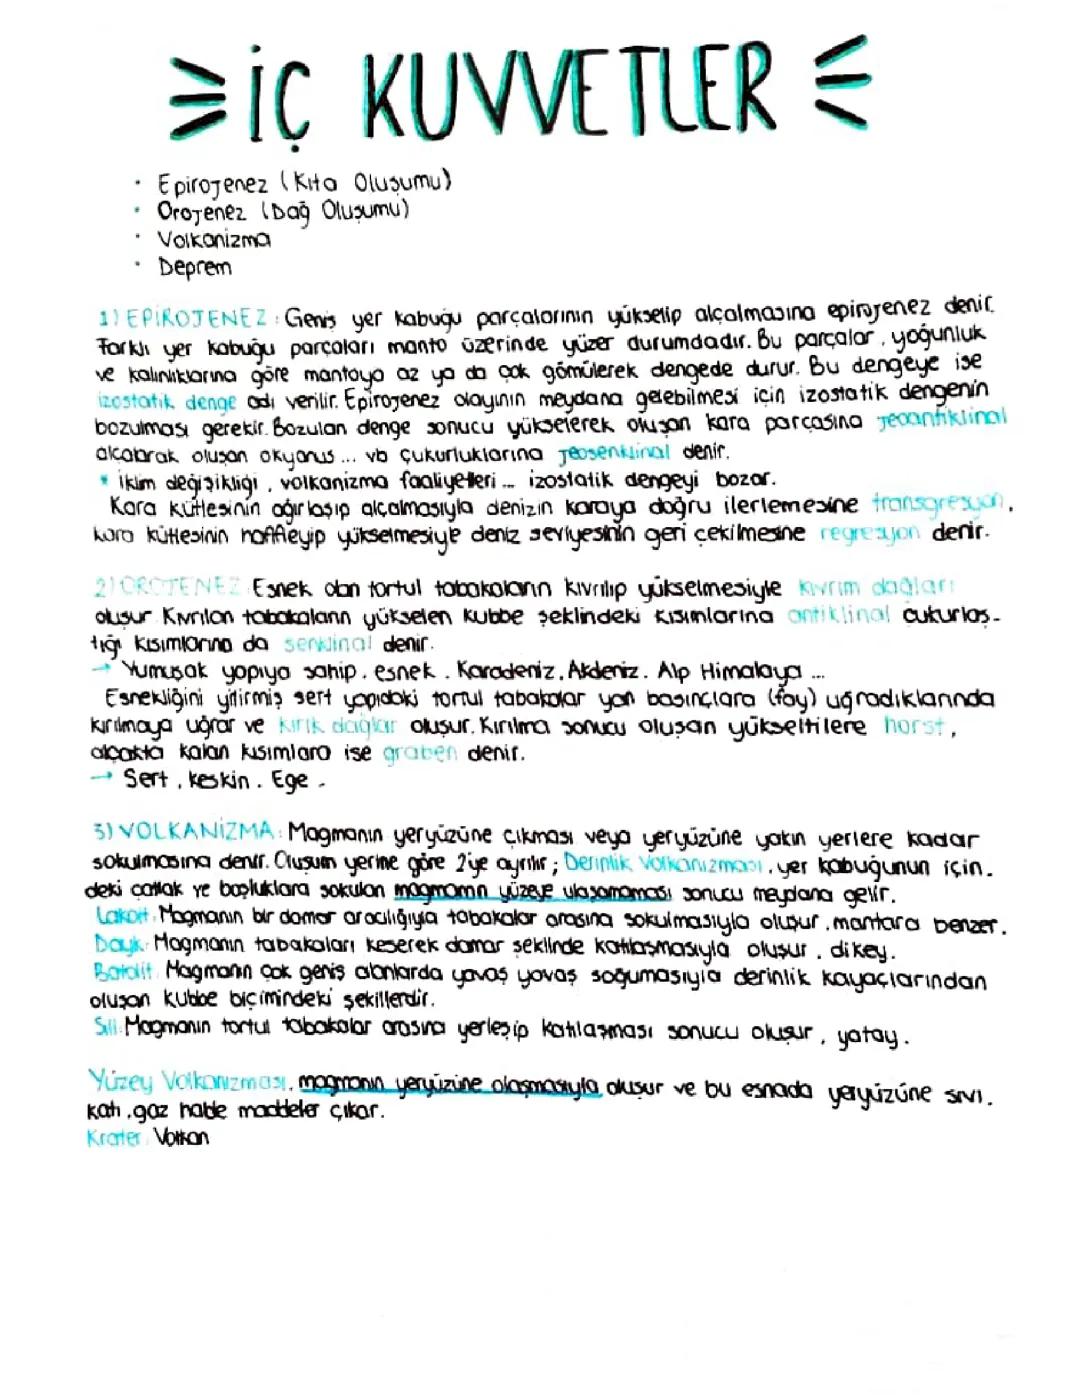 İÇ KUVVETLER
• Epirojenez (Kıta Oluşumu)
• Orojenez (Dağ Oluşumu)
• Volkanizma
• Deprem
1) EPİROJENEZ: Geniş yer kabuğu parçalarının yükselip alçalmasına epirojenez denir.
Farklı yer kabuğu parçaları manto üzerinde yüzer durumdadır. Bu parçalar, yoğunluk
ve kalınlıklarına göre mantoya az ya da çok gömülerek dengede durur. Bu dengeye ise
izostatik denge adı verilir. Epirojenez olayının meydana gelebilmesi için izostatik dengenin
bozulması gerekir. Bozulan denge sonucu yükselerek oluşan kara parçasına jeoantiklinal
alçalarak oluşan okyanus... vb çukurluklarına jeosenklinal denir.
* iklim değişikliği, volkanizma faaliyetleri... izostatik dengeyi bozar.
Kara kütlesinin ağırlaşıp alçalmasıyla denizin karaya doğru ilerlemesine transgresyon,
kara kütlesinin hafifleyip yükselmesiyle deniz seviyesinin geri çekilmesine regresyon denir.
2) OROJENEZ: Esnek olan tortul tabakaların kıvrılıp yükselmesiyle kıvrım dağları
oluşur. Kıvrılan tabakaların yükselen kubbe şeklindeki kısımlarına antiklinal çukurlaş-
tığı kısımlarına da senklinal denir.
→ Yumuşak yapıya sahip, esnek. Karadeniz, Akdeniz. Alp Himalaya ...
Esnekliğini yitirmiş sert yapıdaki tortul tabakalar yan basınçlara (fay) uğradıklarında
kırılmaya uğrar ve kırık dağlar oluşur. Kırılma sonucu oluşan yükseltilere horst,
alçakta kalan kısımlara ise graben denir.
→ Sert, keskin. Ege.
3) VOLKANİZMA: Magmanın yeryüzüne çıkması veya yeryüzüne yakın yerlere kadar
sokulmasına denir. Oluşum yerine göre 2'ye ayrılır; Derinlik Volkanizması, yer kabuğunun için.
deki çatlak ve boşluklara sokulan magmanın yüzeye ulaşamaması sonucu meydana gelir.
Lakolit: Magmanın bir damar aracılığıyla tabakalar arasına sokulmasıyla oluşur, mantara benzer.
Dayk: Magmanın tabakaları keserek damar şeklinde katılaşmasıyla oluşur, dikey.
Batolit: Magmanın çok geniş alanlarda yavaş yavaş soğumasıyla derinlik kayaçlarından
oluşan kubbe biçimindeki şekillerdir.
Sill: Magmanın tortul tabakalar arasına yerleşip katılaşması sonucu oluşur, yatay.
Yüzey Volkanizması, magmanın yeryüzüne ulaşmasıyla oluşur ve bu esnada yeryüzüne sıvı.
katı, gaz halde maddeler çıkar.
Krater: Volkan